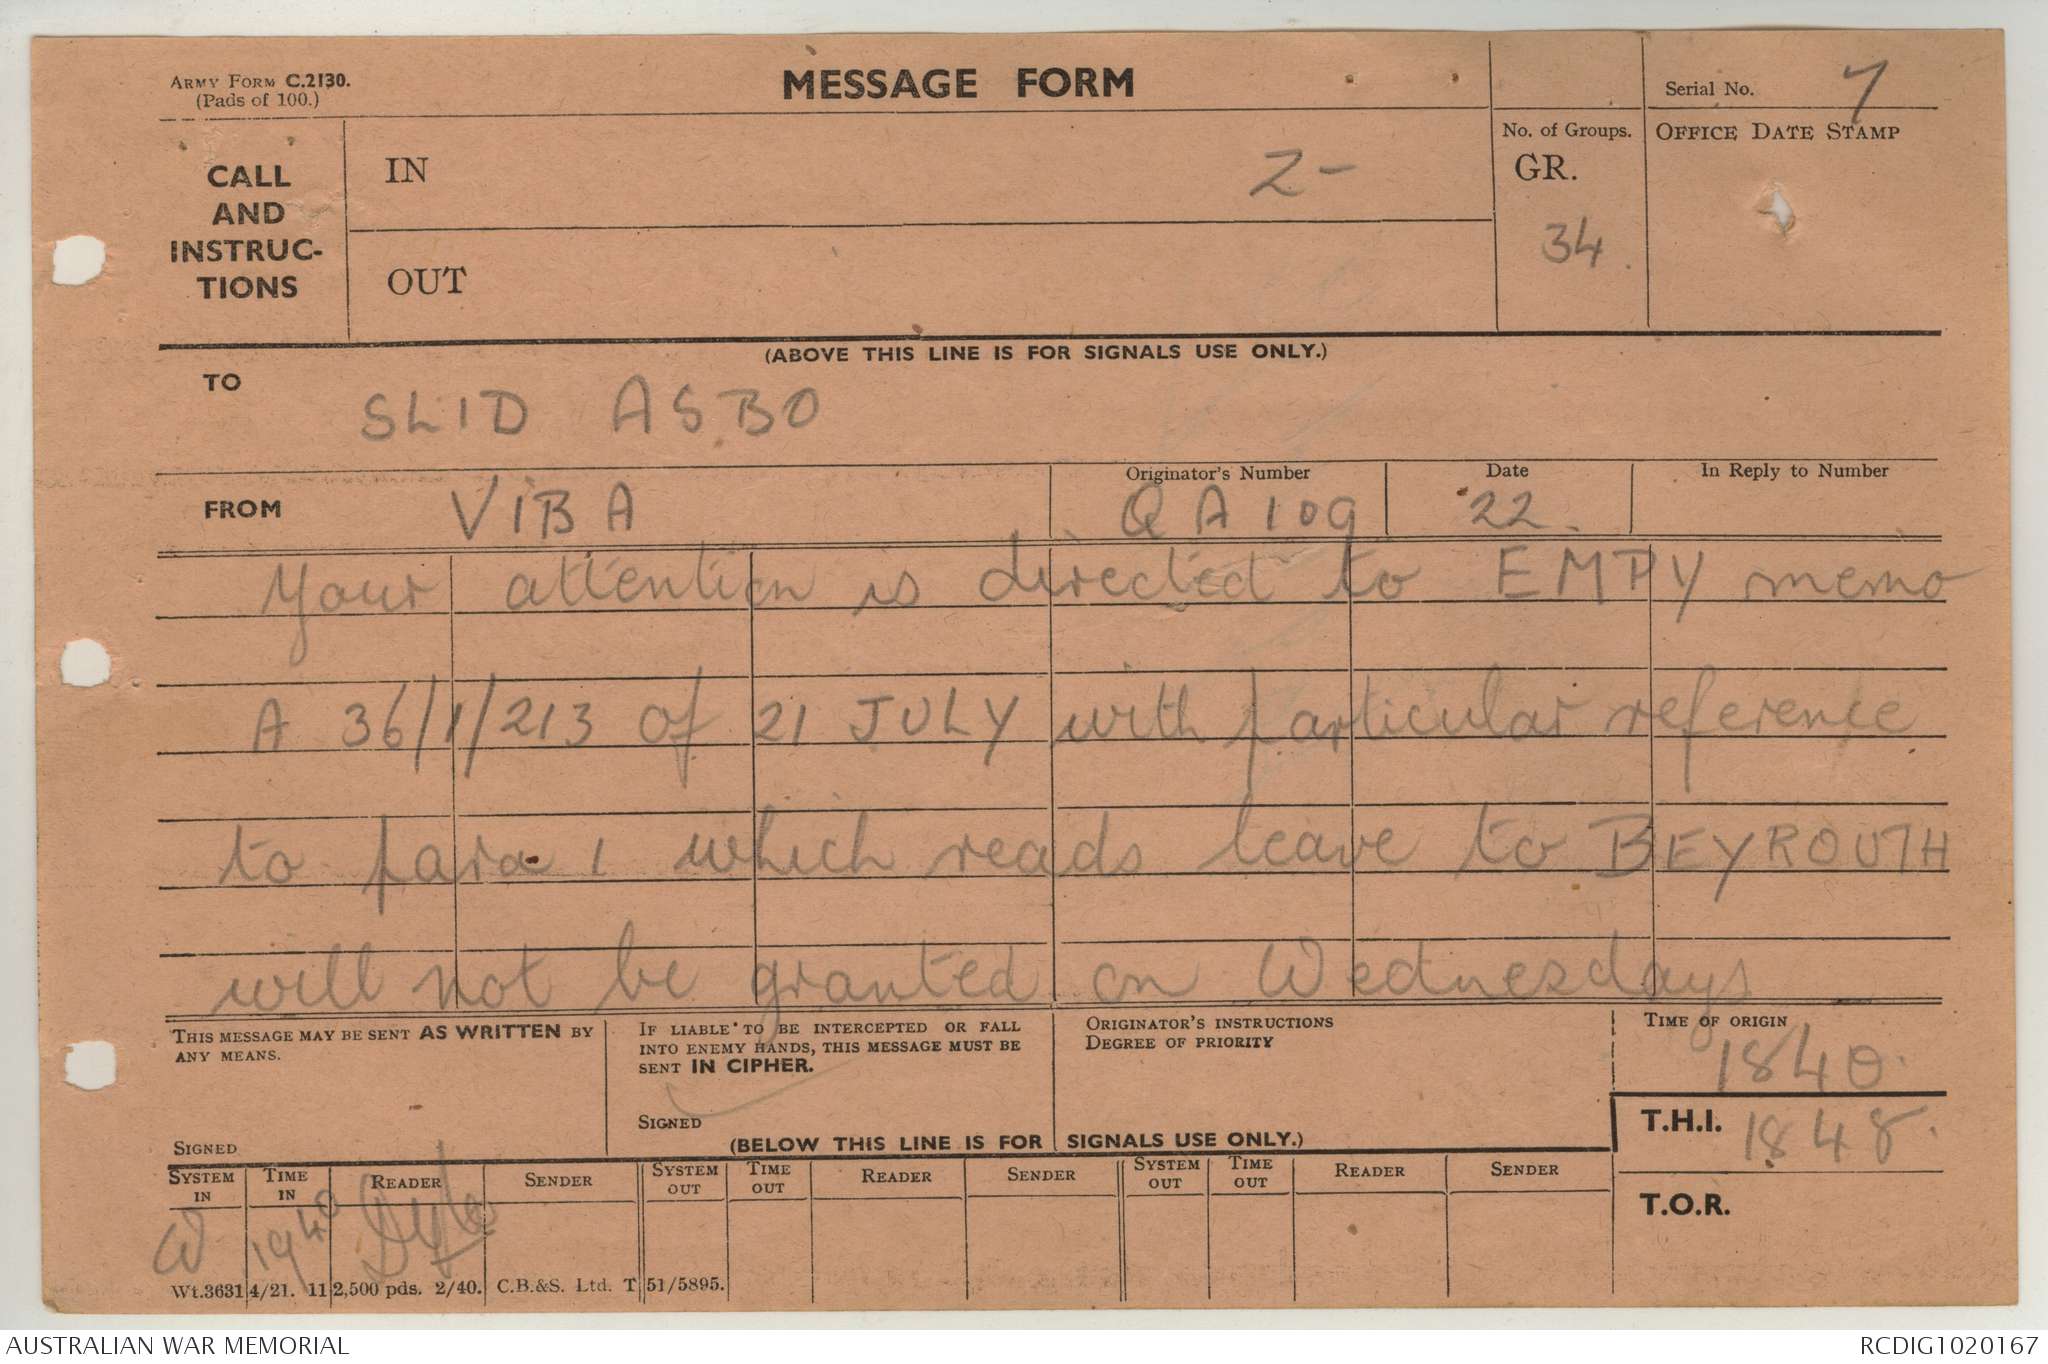 ARMY FORM C.2130.
(Pads of 100.)
MESSAGE FORM
Serial No. 7
CALL
AND
INSTRUC-
TIONS
IN
2-
No. of Groups.
GR.
34.
OFFICE DATE STAMP
OUT
(ABOVE THIS LINE IS FOR SIGNALS USE ONLY.)
TO
SLID ASBO
FROM
VIBA
Originator's Number
QA109
Date
22.
In Reply to Number
Your attention is directed to EMPY memo
A 36/1/213 of 21 JULY with particular reference
to para 1 which reads leave to BEYROUTH
will not be granted on Wednesdays
THIS MESSAGE MAY BE SENT AS WRITTEN BY
ANY MEANS.
SIGNED
IF LIABLE TO BE INTERCEPTED OR FALL
INTO ENEMY HANDS, THIS MESSAGE MUST BE
SENT IN CIPHER.
SIGNED
ORIGINATOR'S INSTRUCTIONS
DEGREE OF PRIORITY
TIME OF ORIGIN
1840.
T.H.I. 1848.
T.O.R.
(BELOW THIS LINE IS FOR SIGNALS USE ONLY.)
SYSTEM IN
TIME IN
READER
SENDER
SYSTEM OUT
TIME OUT
READER
SENDER
SYSTEM OUT
TIME OUT
READER
SENDER
W 1940
Wt.36314/21. 112,500 pds. 2/40. C.B.&S. Ltd. T51/5895.
AUSTRALIAN WAR MEMORIAL
RCDIG1020167